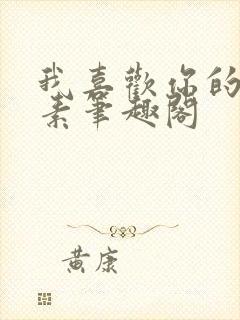 我喜歡你的
素筆趣閣
黃康